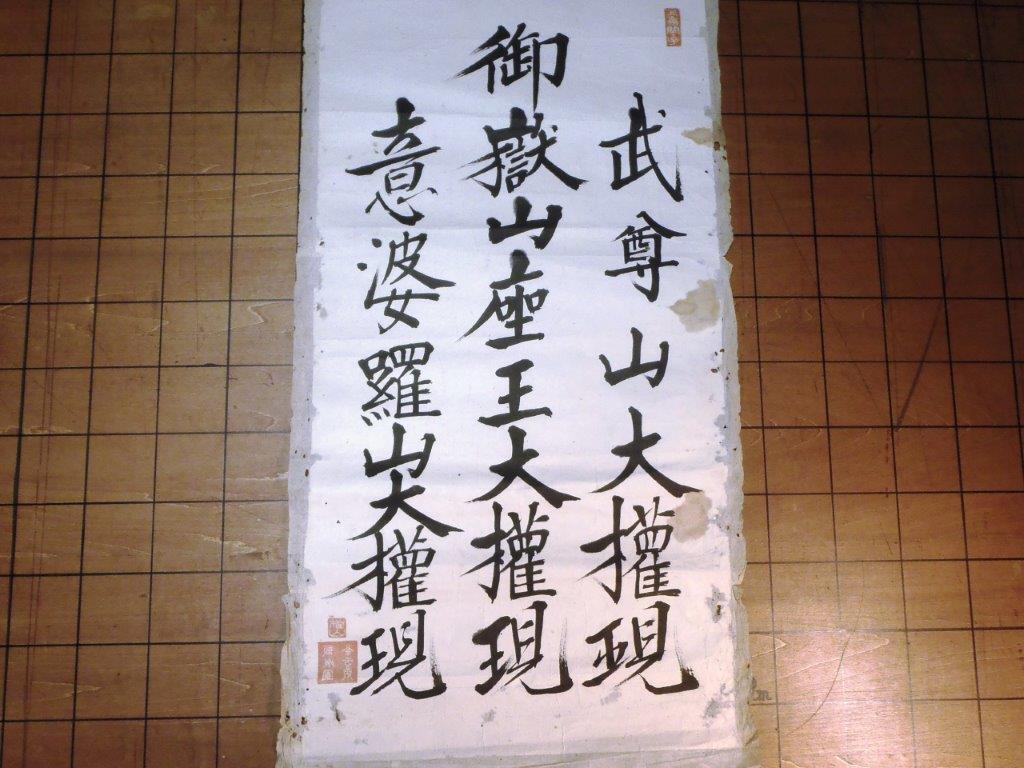 武尊山大權現
御嶽山座王大權現
意婆羅山大權現